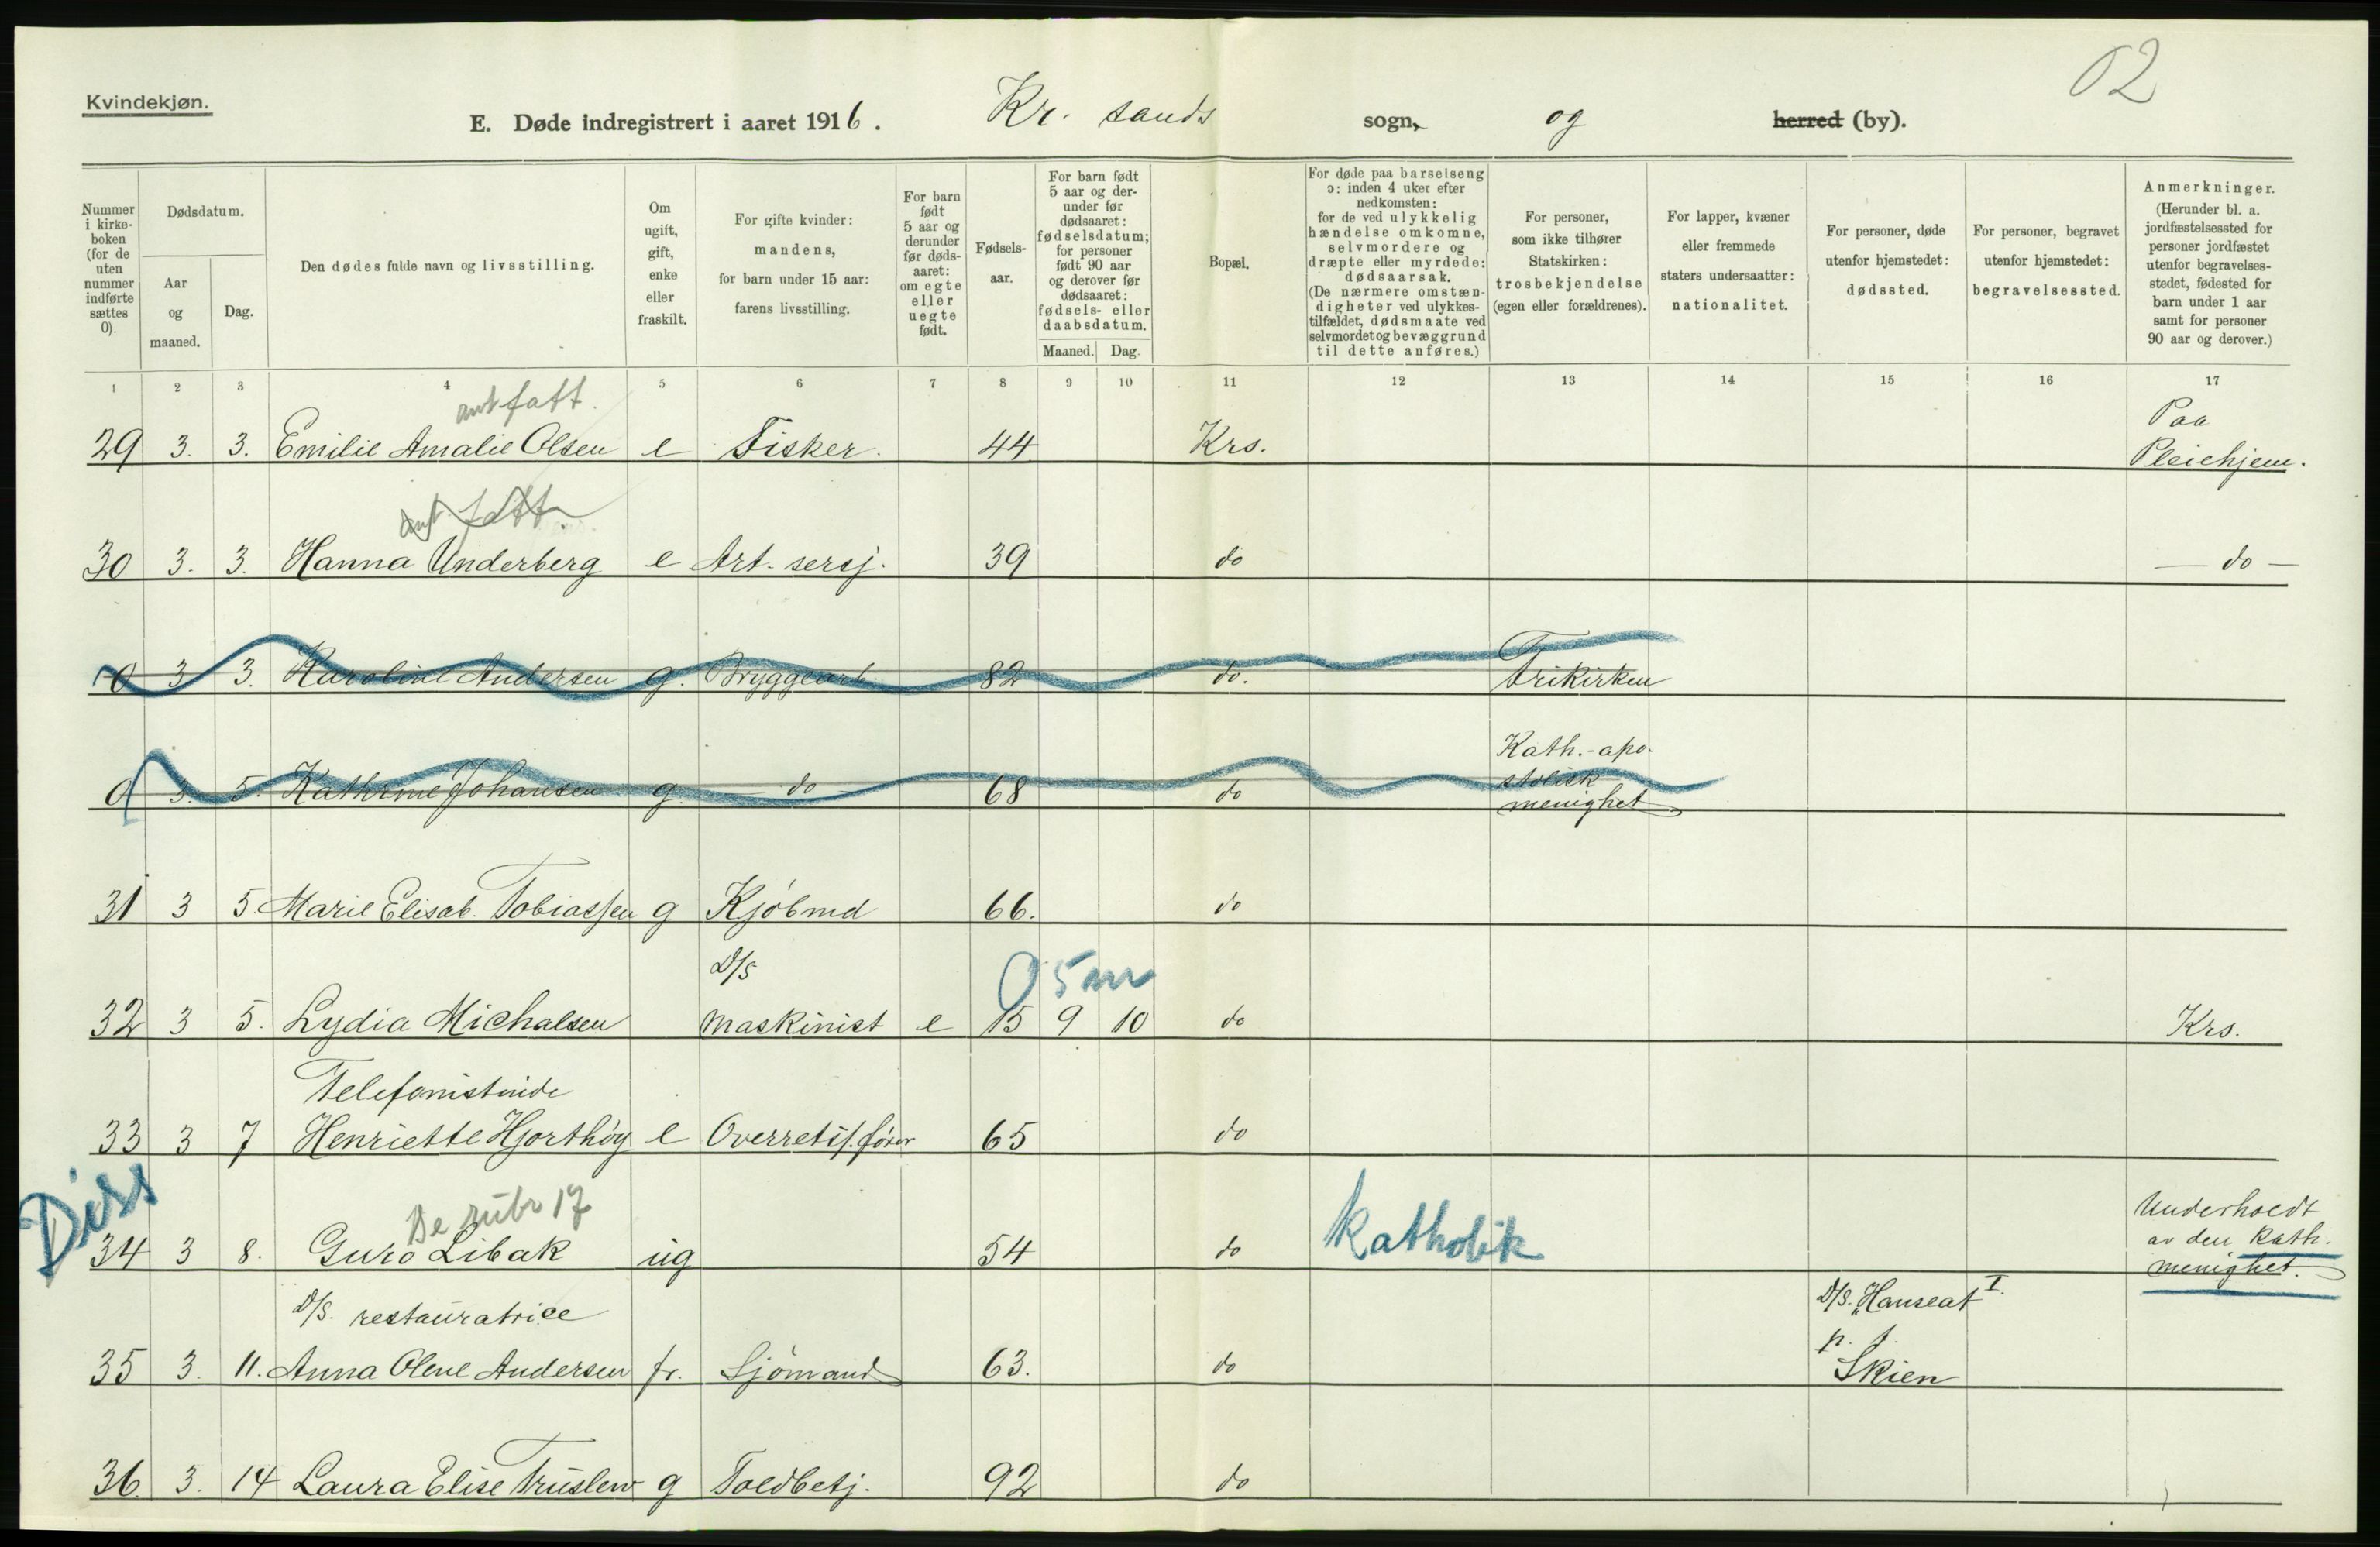 02
Kvindekjøn.
E. Døde indregistrert i aaret 1916. Kr. sands sogn, og herred (by).
Nummer i kirke-boken (for de uten nummer indførte sættes 0).
Dødsdatum.
Aar og maaned.
Dag.
Den dødes fulde navn og livsstilling.
Om ugift, gift, enke eller fraskilt.
For gifte kvinder: mandens, for barn under 15 aar: farens livsstilling.
For barn født 5 aar og derunder før døds-aaret: om egte eller uegte født.
Fødsels-aar.
For barn født 5 aar og der-under før dødsaaret: fødselsdatum; for personer født 90 aar og derover før dødsaaret: fødsels- eller daabsdatum.
Maaned. Dag.
Bopæl.
For døde paa barselseng ɔ: inden 4 uker efter nedkomsten: for de ved ulykkelig hændelse omkomne, selvmordere og dræpte eller myrdede: dødsaarsak. (De nærmere omstæn-digheter ved ulykkes-tilfældet, dødsmaate ved selvmordet og bevæggrund til dette anføres.)
For personer, som ikke tilhører Statskirken: trosbekjendelse (egen eller forældrenes).
For lapper, kvæner eller fremmede staters undersaatter: nationalitet.
For personer, døde utenfor hjemstedet: dødssted.
For personer, begravet utenfor hjemstedet: begravelsessted.
Anmerkninger. (Herunder bl. a. jordfæstelsessted for personer jordfæstet utenfor begravelses-stedet, fødested for barn under 1 aar samt for personer 90 aar og derover.)
1 2 3 4 5 6 7 8 9 10 11 12 13 14 15 16 17
ant fatt.
Paa
29 3. 3. Emilie Amalie Olsen e Fisker. 44 Krs. Pleiehjem.
ant fatt
30 3. 3. Hanna Underberg e Art. sersj. 39 do — do —
0 3 3. Karoline Andersen g. Bryggearb. 82 do. Frikirken
Kath.-apo-
stolisk
0 3. 5. Kathrine Johansen g. do 68 do menighet
31 3 5. Marie Elisab. Tobiassen g Kjöbmd 66. do
D/S
5 aar
32 3 5. Lydia Michalsen maskinist e 15 9 10 do Krs.
Telefonistinde
33 3 7 Henriette Hjorthöy e Overretss.förer 65 do
Diss
De rubr 17
Underholdt
av den Kath.
34 3 8. Guro Libak ug 54 do Katholik menighet.
D/S. restauratrice
D/S. "Hanseat I.
p. t.
35 3. 11. Anna Olene Andersen fr. Sjömand 63. do Skien
36. 3. 14 Laura Elise Truslew g Toldbetj. 92 do